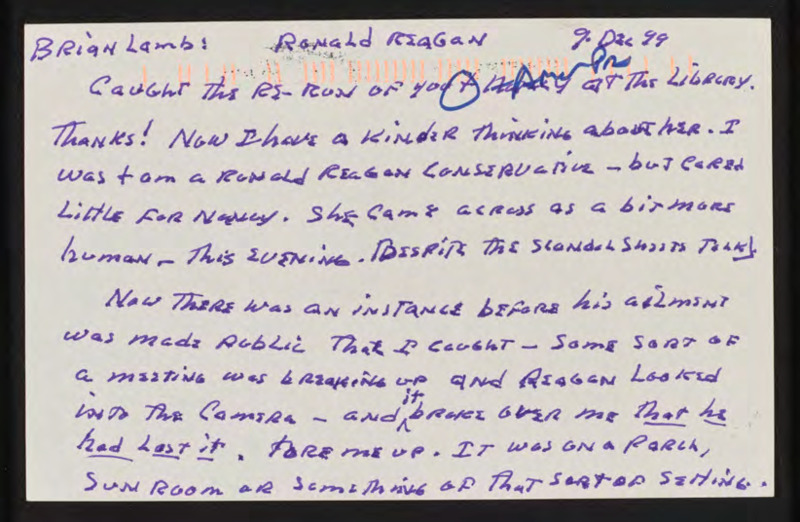 BRian Lamb: RONALD REAGAN 9 DEC 99
CAUGHT THE RE-RUN OF YOU + NANCY AT THE LIBRARY.
THANKS! NOW I HAVE A KINDER THINKING ABOUT HER. I
WAS + AM A RONALD REAGAN CONSERVATIVE - BUT CARED
LITTLE FOR NANCY. SHE CAME ACROSS AS A BIT MORE
HUMAN - THIS EVENING. (DESPITE THE SCANDAL SHEETS TALK).
NOW THERE WAS AN INSTANCE BEFORE HIS AILMENT
WAS MADE PUBLIC THAT I CAUGHT - SOME SORT OF
A MEETING WAS BREAKING UP AND REAGAN LOOKED
INTO THE CAMERA - AND it BROKE OVER ME that he
had Lost it. TORE ME UP. IT WAS ON A PORCH,
SUN ROOM OR SOMETHING OF THAT SORT OF SETTING.